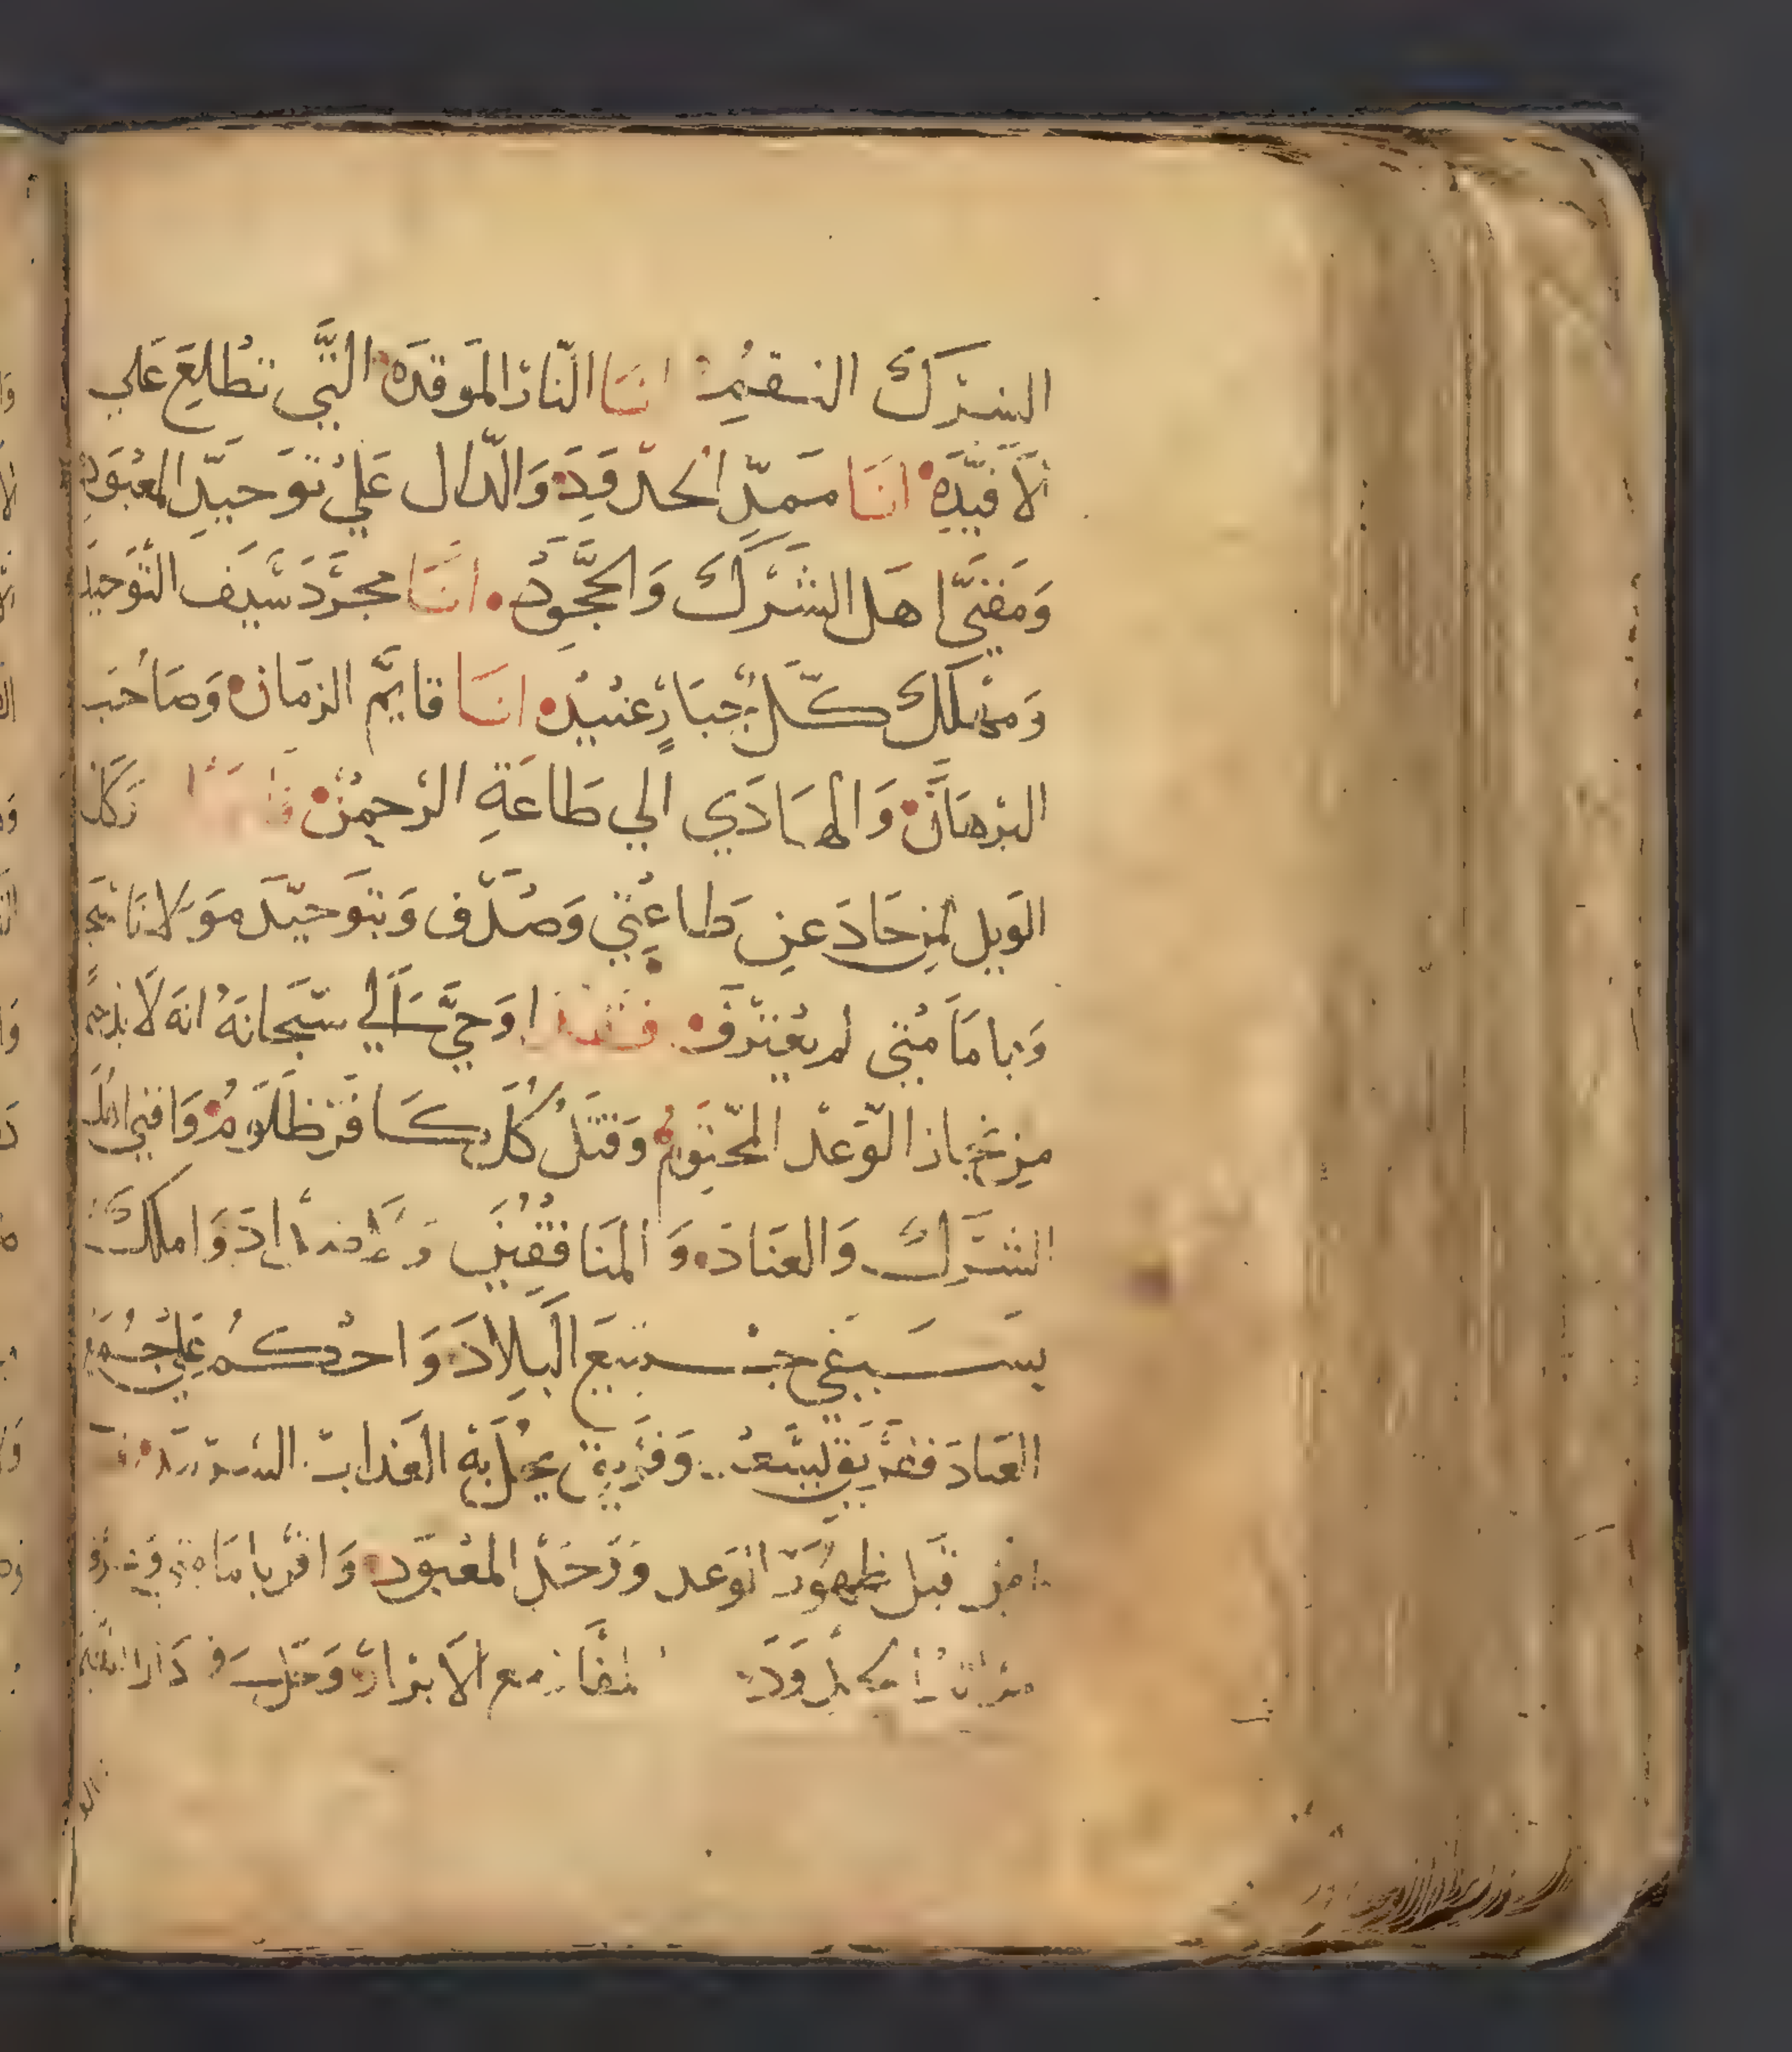 الشرك السقيم انا النار الموقده التي تطلع علي
الافيده انا ممد الحدقد والدال علي توحيد المعبود
ومفني اهل الشرك والحجود انا مجرد سيف التوحيد
ومهلك كل جبار عنيد انا قايم الزمان وصاحب
البرهان والهادي الي طاعة الرحمن
الويل لمن حاد عن طاعتي وصدف وبتوحيد مولانا
وبامامتي لم يعترف اوحي الي سبحانه انه لا
من نجاز الوعد المحتوم وقتل كل كافر ظلوم وافني اهل
الشرك والعناد والمنافقين واملك
بسيفي جميع البلاد واحكم علي جميع
العباد وفريق يحل به العذاب
من قبل ظهور الوعد ووحد المعبود واقر بامامتي
مع الابرار وحل في دار